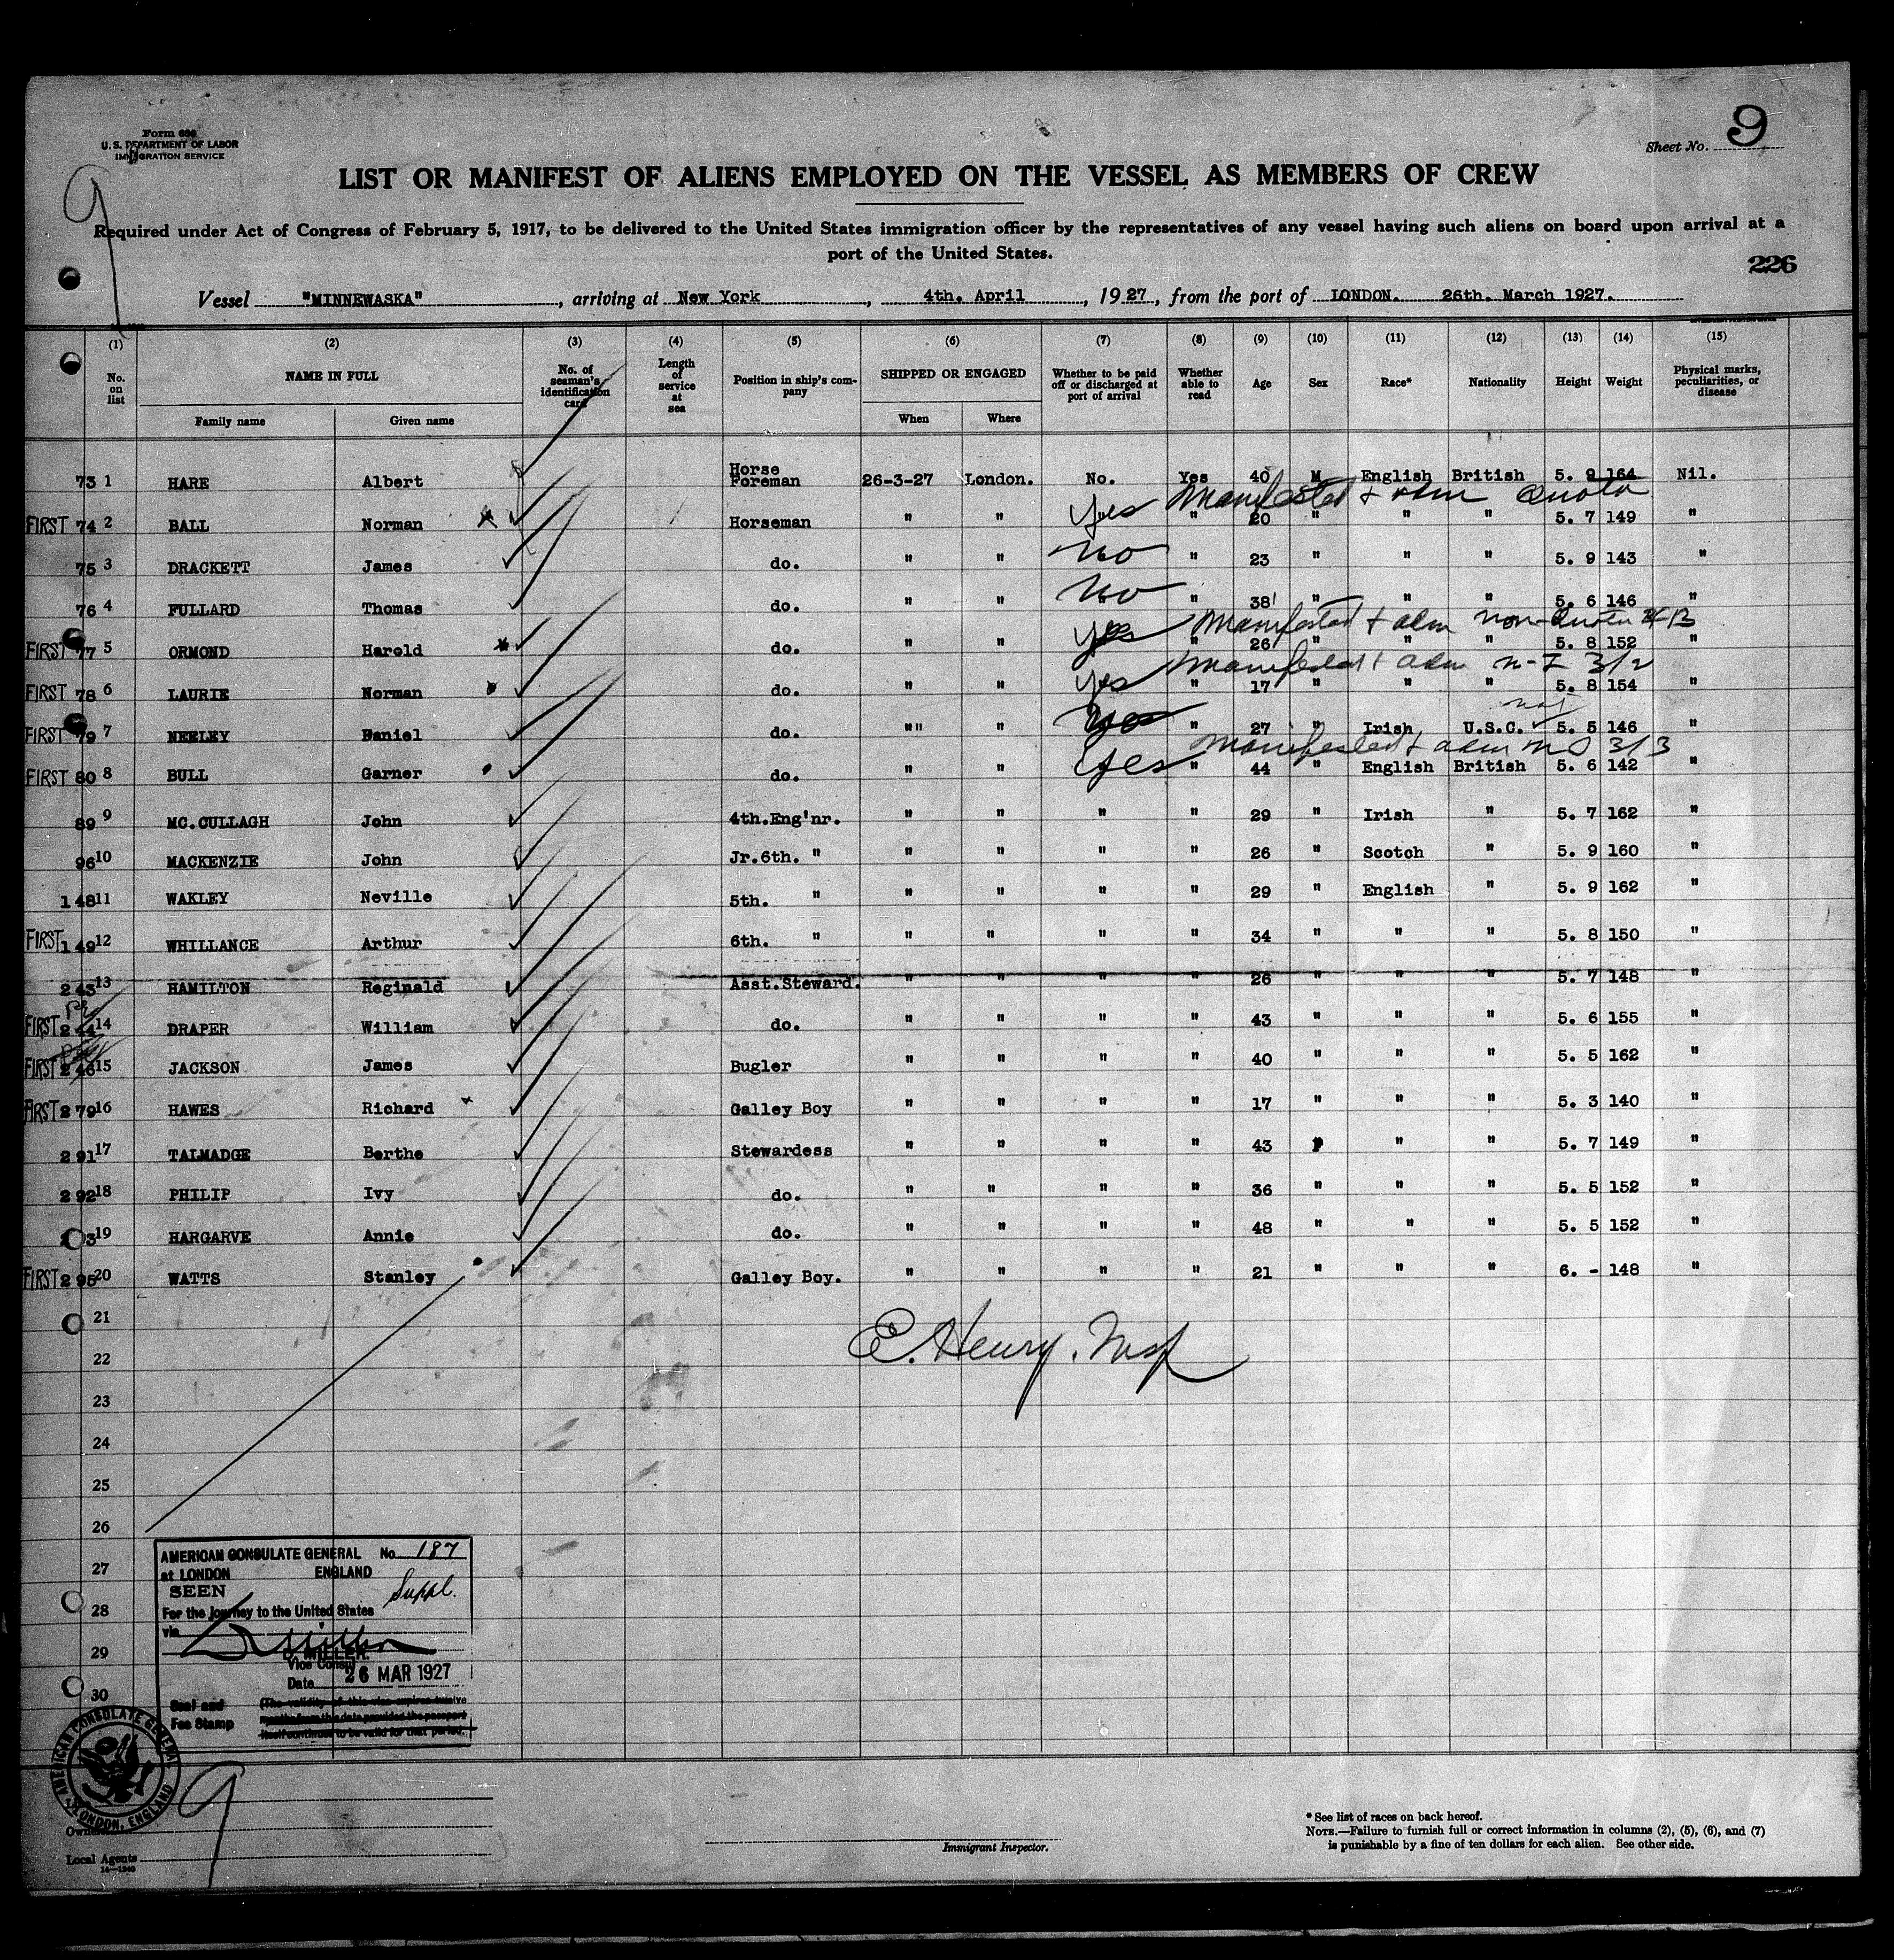 Form 680
U. S. DEPARTMENT OF LABOR
IMMIGRATION SERVICE
Sheet No. 9
9
LIST OR MANIFEST OF ALIENS EMPLOYED ON THE VESSEL AS MEMBERS OF CREW
Required under Act of Congress of February 5, 1917, to be delivered to the United States immigration officer by the representatives of any vessel having such aliens on board upon arrival at a
port of the United States.
226
Vessel "MINNEWASKA", arriving at New York, 4th. April, 1927, from the port of LONDON. 26th. March 1927.
(1) (2) (3) (4) (5) (6) (7) (8) (9) (10) (11) (12) (13) (14) (15)
No. on list NAME IN FULL Family name Given name No. of seaman's identification card Length of service at sea Position in ship's company SHIPPED OR ENGAGED When Where Whether to be paid off or discharged at port of arrival Whether able to read Age Sex Race* Nationality Height Weight Physical marks, peculiarities, or disease
73 1 HARE Albert Horse Foreman 26-3-27 London. No. Yes 40 M English British 5. 9 164 Nil.
Manifested + adm Quota
FIRST 74 2 BALL Norman Horseman " " Yes " 20 " " " 5. 7 149 "
75 3 DRACKETT James do. " " No " 23 " " " 5. 9 143 "
76 4 FULLARD Thomas do. " " No " 38 " " " 5. 6 146 "
Manifested + adm non-Quota
FIRST 77 5 ORMOND Harold do. " " Yes " 26 " " " 5. 8 152 "
Manifested + adm 3/2
FIRST 78 6 LAURIE Norman do. " " Yes " 17 " " " 5. 8 154 "
FIRST 79 7 NEELEY Daniel do. " " " 27 " Irish U.S.C. 5. 5 146 "
Manifested + adm 3/3
FIRST 80 8 BULL Garner do. " " Yes " 44 " English British 5. 6 142 "
89 9 MC.CULLAGH John 4th.Eng'nr. " " " " 29 " Irish " 5. 7 162 "
96 10 MACKENZIE John Jr.6th. " " " " " 26 " Scotch " 5. 9 160 "
148 11 WAKLEY Neville 5th. " " " " " 29 " English " 5. 9 162 "
FIRST 149 12 WHILLANCE Arthur 6th. " " " " " 34 " " " 5. 8 150 "
243 13 HAMILTON Reginald Asst.Steward. " " " " 26 " " " 5. 7 148 "
FIRST 244 14 DRAPER William do. " " " " 43 " " " 5. 6 155 "
FIRST 246 15 JACKSON James Bugler " " " " 40 " " " 5. 5 162 "
FIRST 279 16 HAWES Richard Galley Boy " " " " 17 " " " 5. 3 140 "
291 17 TALMADGE Berthe Stewardess " " " " 43 F " " 5. 7 149 "
292 18 PHILIP Ivy do. " " " " 36 " " " 5. 5 152 "
3 19 HARGARVE Annie do. " " " " 48 " " " 5. 5 152 "
FIRST 295 20 WATTS Stanley Galley Boy. " " " " 21 " " " 6. - 148 "
21
E. Henry. Insp
22
23
24
25
26
27
28
29
30
AMERICAN CONSULATE GENERAL No. 187
at LONDON ENGLAND
SEEN Suppl.
For the journey to the United States
via
D. MILLER.
Vice Consul
Date 26 MAR 1927
Seal and Fee Stamp
(The validity of this visa expires twelve
months from the date provided the passport
itself continues to be valid for that period.
AMERICAN CONSULATE GENERAL LONDON, ENGLAND
9
Owners
Local Agents
Immigrant Inspector.
* See list of races on back hereof.
NOTE.—Failure to furnish full or correct information in columns (2), (5), (6), and (7)
is punishable by a fine of ten dollars for each alien. See other side.